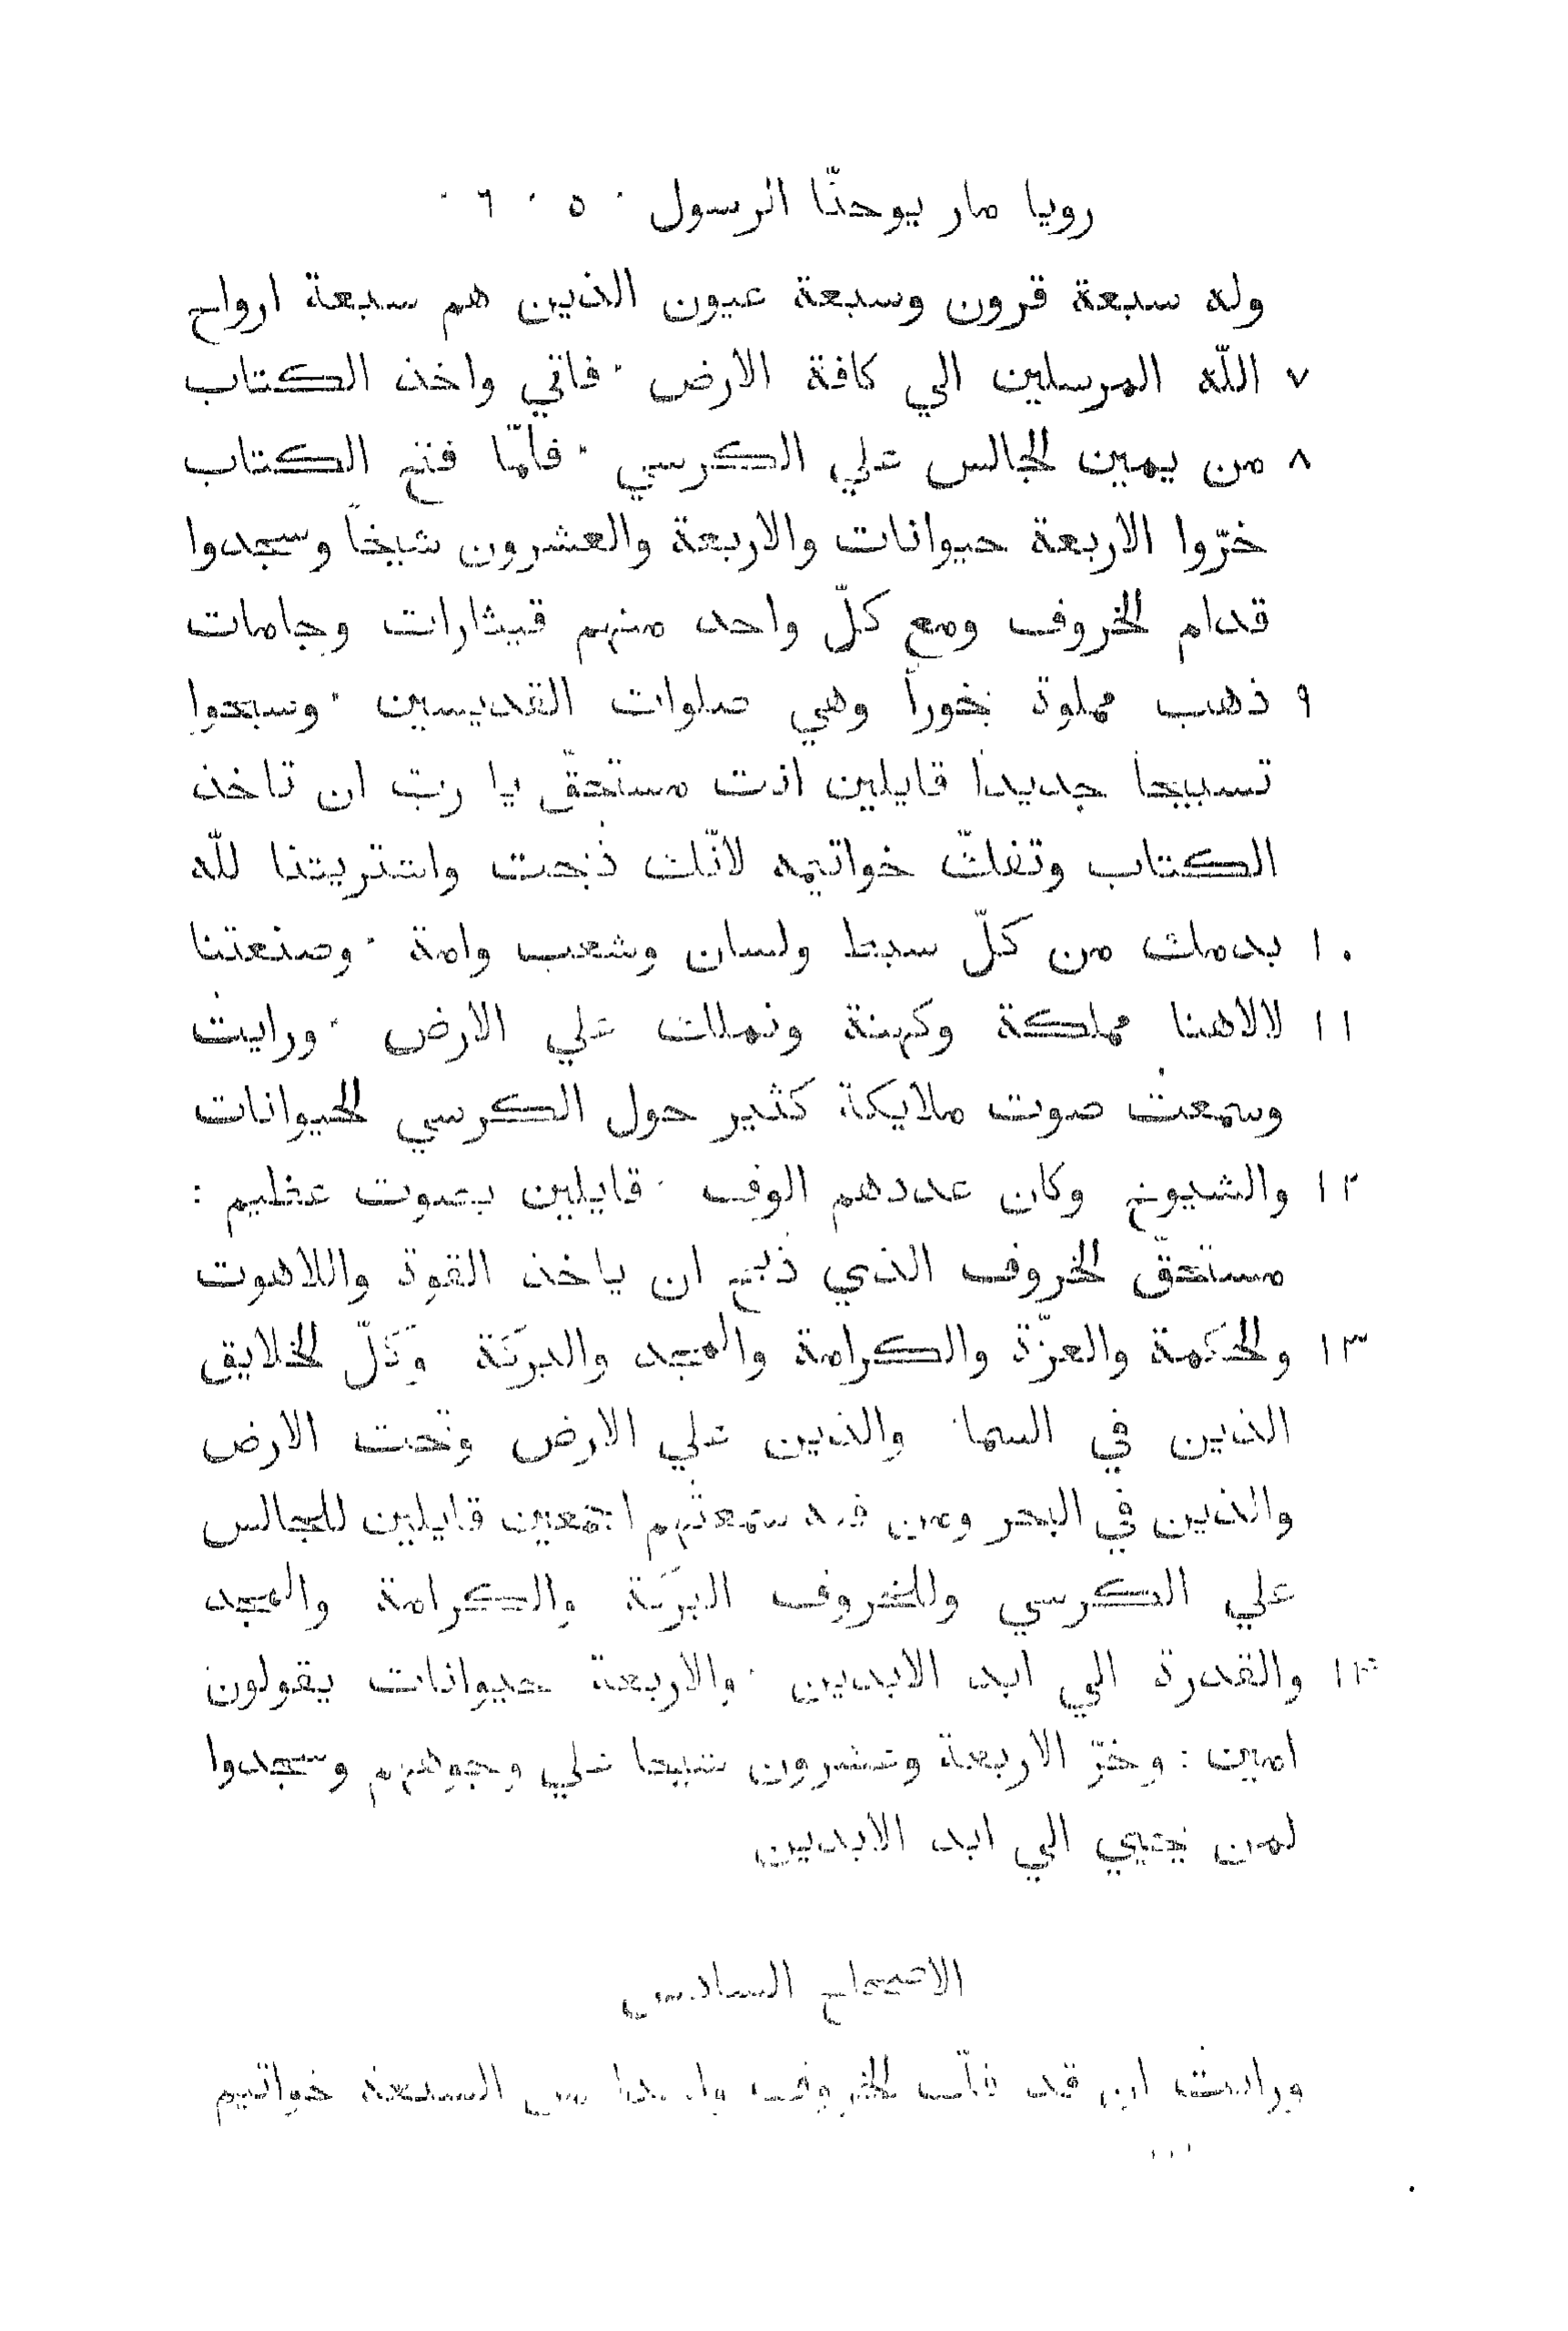 رويا مار يوحنّا الرسول ٠ ٥ ٠ ٦ ٠
وله سبعة قرون وسبعة عيون الذين هم سبعة ارواح
٧ اللّه المرسلين الي كافة الارض ٠ فاتي واخذ الكتاب
٨ من يمين الجالس علي الكرسي ٠ فلمّا فتح الكتاب
خرّوا الاربعة حيوانات والاربعة والعشرون شيخاً وسجدوا
قدام الخروف ومع كلّ واحد منهم قيثارات وجامات
٩ ذهب مملوة بخوراً وهي صلوات القديسين ٠ وسبحوا
تسبيحا جديدا قايلين انت مستحقّ يا ربّ ان تاخذ
الكتاب وتفكّ خواتيمه لانّك ذُبحت واشتريتنا للّه
١٠ بدمك من كلّ سبط ولسان وشعب وامة ٠ وصنعتنا
١١ لالاهنا مملكة وكهنة ونملك علي الارض ٠ ورايتُ
وسمعتُ صوت ملايكة كثير حول الكرسي الحيوانات
١٢ والشيوخ وكان عددهم الوف ٠ قايلين بصوت عظيم :
مستحقّ الخروف الذي ذُبح ان ياخذ القوة واللاهوت
١٣ والحكمة والعزّة والكرامة والمجد والبركة وكلّ الخلايق
الذين في السما والذين علي الارض وتحت الارض
والذين في البحر ومن فيه سمعتُهم اجمعين قايلين للجالس
علي الكرسي وللخروف البركة والكرامة والمجد
١٤ والقدرة الي ابد الابدين ٠ والاربعة حيوانات يقولون
امين : وخرّ الاربعة وعشرون شيخا علي وجوههم وسجدوا
لمن يحيي الي ابد الابدين
الاصحاح السادس
ورايتُ ان قد فكّ الخروف السبعة خواتيم